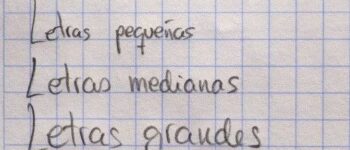 Letras pequeñas
Letras medianas
Letras grandes